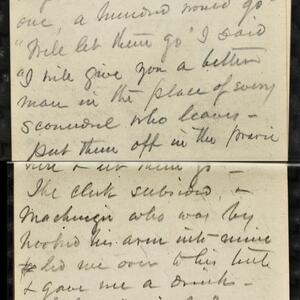 one, a hundred would go"
"Well let them go' I said
"I will give you a better
man in the place of every
scoundrel who leaves –
put them off in the prairie
here & let them go –
The clerk subsided, &
who was by
hooked his arm into mine
& led me over to his tent
& gave me a drink –